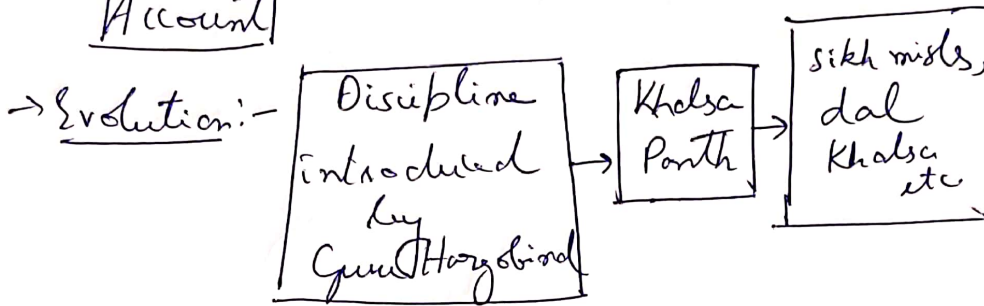 Account
→ Evolution:-
Discipline
introduced
by
Guru Hargobind
→
Khalsa
Panth
→
sikh misls,
dal
Khalsa
etc